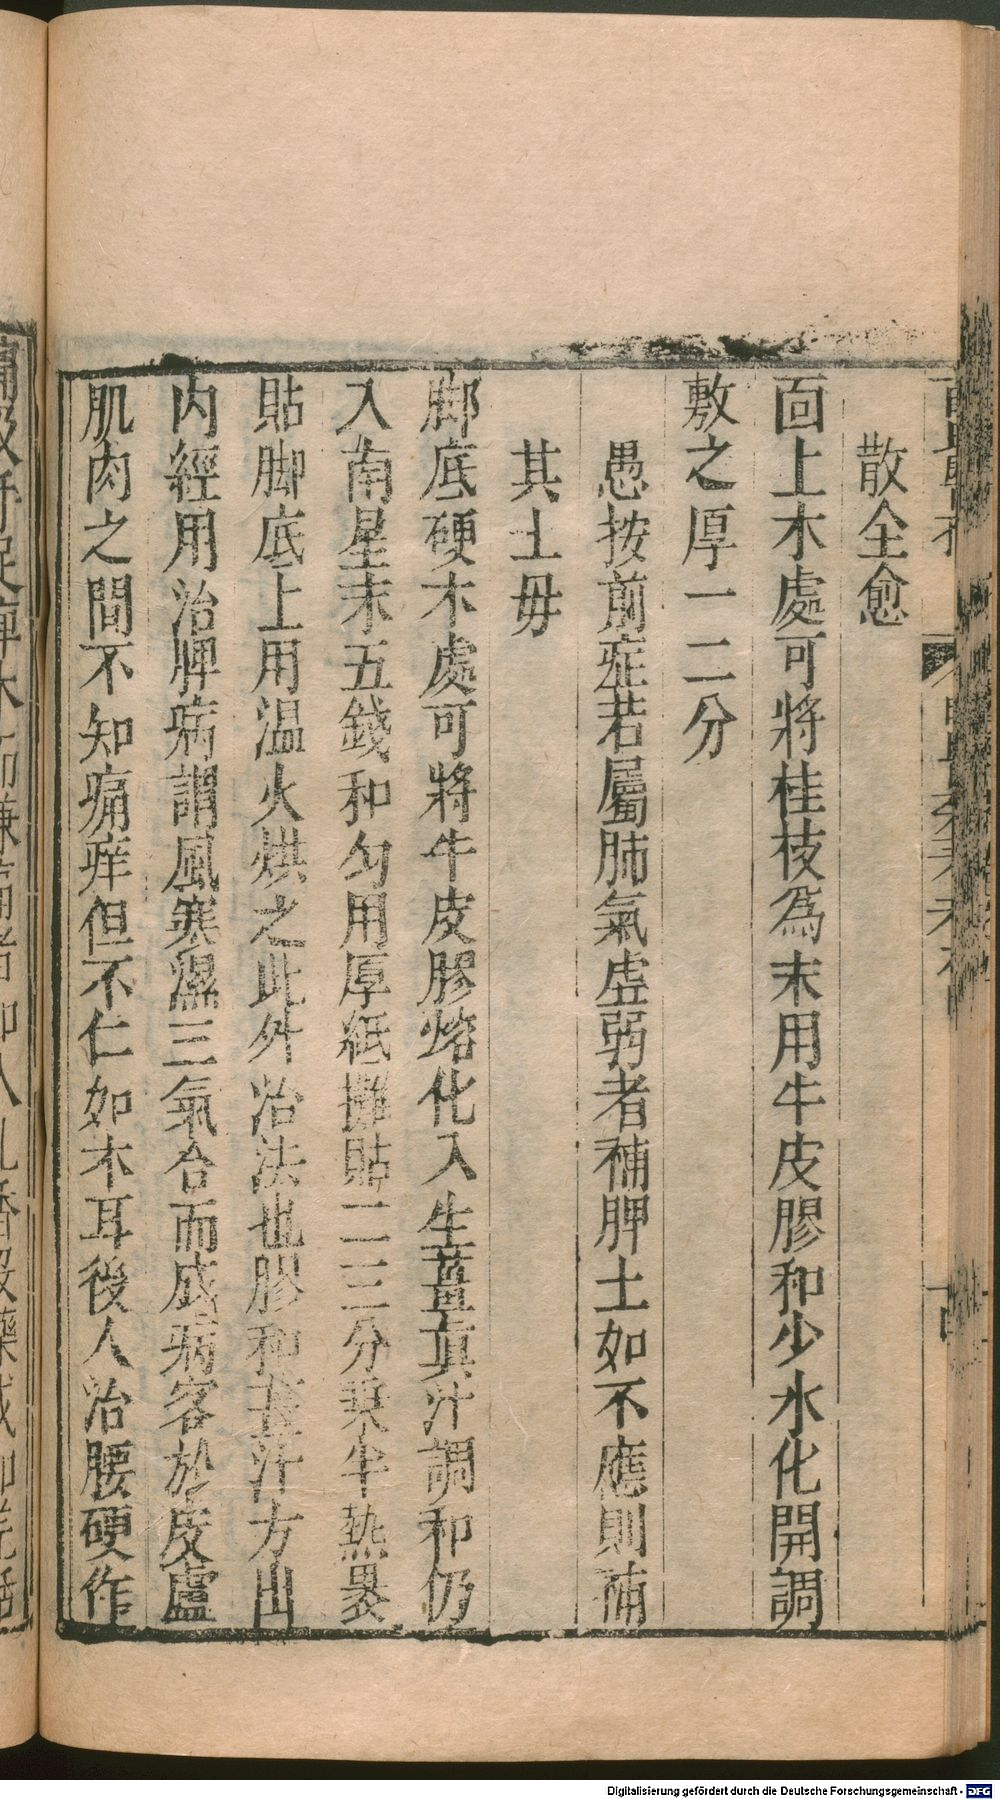 散全愈
面上木處可將桂枝為末用牛皮膠和少水化開調
敷之厚一二分
愚按前症若屬肺氣虛弱者補脾土如不應則補
其土毋
脚底硬木處可將牛皮膠熔化入生薑真汁調和仍
入南星末五錢和勻用厚紙攤貼二三分乗半熱裹
貼脚底上用温火烘之此外治法也膠和薑汁方出
内經用治脾病謂風寒濕三氣合而成病客於皮膚
肌肉之間不知痛痒但不仁如木耳後人治腰硬作
Digitalisierung gefördert durch die Deutsche Forschungsgemeinschaft - DFG